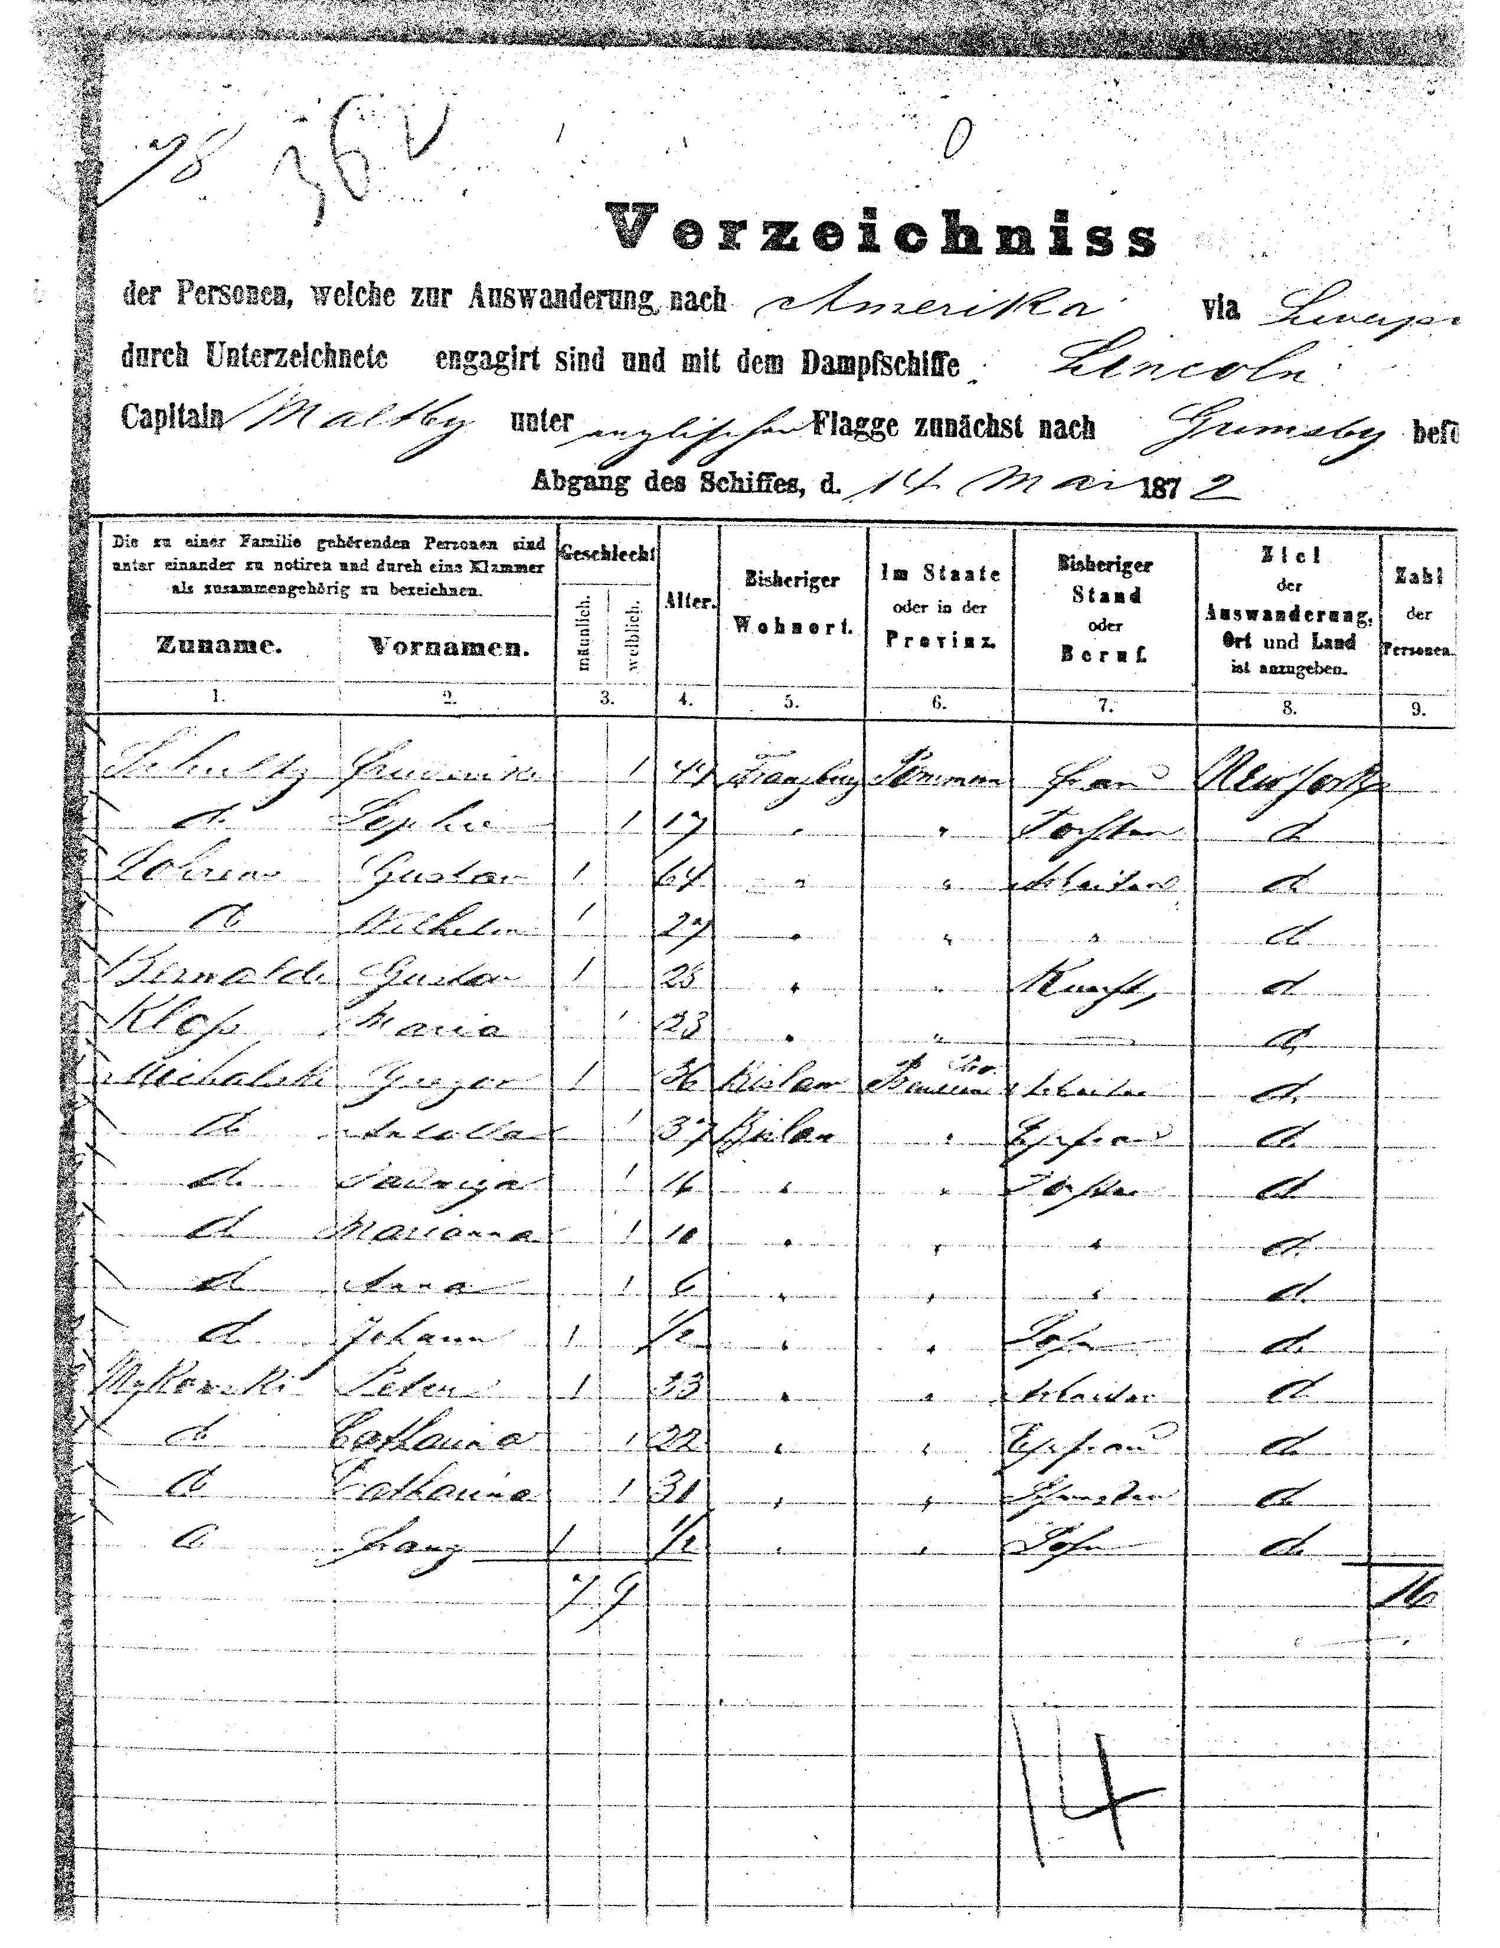 78 362
0
Verzeichniss
der Personen, welche zur Auswanderung nach Amerika via
durch Unterzeichnete engagirt sind und mit dem Dampfschiffe Lincoln
Capitain Maltby unter englischer Flagge zunächst nach Grimsby befö
Abgang des Schiffes, d. 14 Mai 1872
Die zu einer Familie gehörenden Personen sind
unter einander zu notiren und durch eine Klammer
als zusammengehörig zu bezeichnen.
Zuname. Vornamen. Geschlecht männlich. weiblich. Alter. Bisheriger Wohnort. Im Staate oder in der Provinz. Bisheriger Stand oder Beruf. Ziel der Auswanderung, Ort und Land ist anzugeben. Zahl der Personen.
1. 2. 3. 4. 5. 6. 7. 8. 9.
Schultz 1 44 Franzburg Pommern Frau New York
d. Sophie 1 17 " " d
Gustav 1 64 " " Arbeiter d
d Wilhelm 1 27 " " " d
Gustav 1 28 " " d
Kloss Maria 1 23 " " d
Michalski Gregor 1 36 Arbeiter d.
d 1 37 " Ehefrau d.
d. 1 16 " " d
d Marianna 1 10 " " " d
d Anna 1 6 " " " d.
d Johann 1 1/2 " " Sohn d.
Peter 1 33 " " Arbeiter d
d Catharina 1 22 " " Ehefrau d
d Catharina 1 31 " " d
d Franz 1 1/2 " " Sohn d.
7 9 16
14